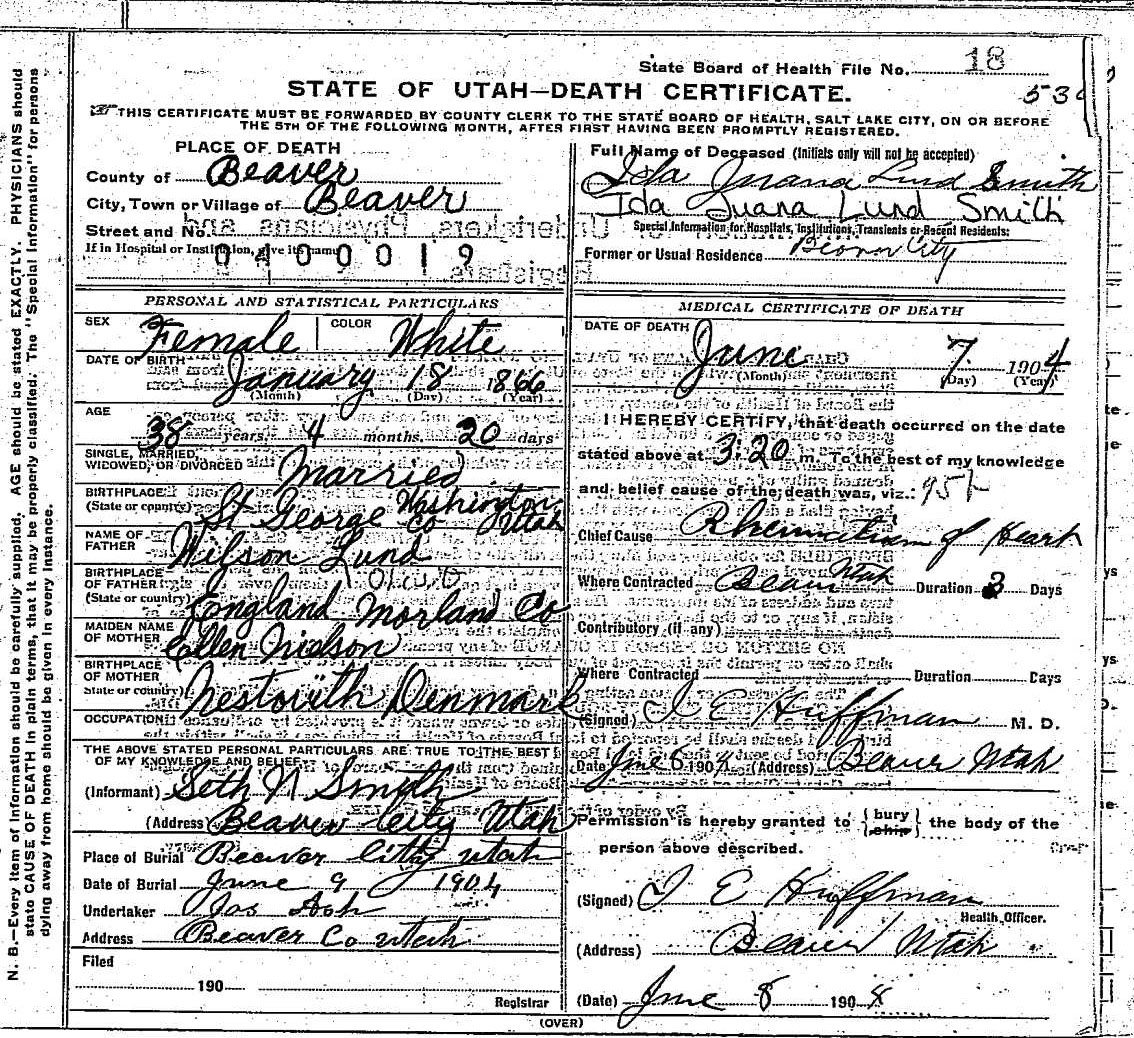 State Board of Health File No. 18
STATE OF UTAH—DEATH CERTIFICATE.
THIS CERTIFICATE MUST BE FORWARDED BY COUNTY CLERK TO THE STATE BOARD OF HEALTH, SALT LAKE CITY, ON OR BEFORE
THE 5TH OF THE FOLLOWING MONTH, AFTER FIRST HAVING BEEN PROMPTLY REGISTERED.
PLACE OF DEATH
County of Beaver
City, Town or Village of Beaver
Street and No.
If in Hospital or Institution, give its name
0400019
Full Name of Deceased (Initials only will not be accepted)
Ida Juana Lund Smith
Ida Juana Lund Smith
Special Information for Hospitals, Institutions, Transients or Recent Residents:
Former or Usual Residence Beaver City
PERSONAL AND STATISTICAL PARTICULARS
SEX Female COLOR White
DATE OF BIRTH January 18 1866
(Month) (Day) (Year)
AGE
38 years, 4 months, 20 days
SINGLE, MARRIED,
WIDOWED, OR DIVORCED Married
BIRTHPLACE
(State or country) St George Washington
Co Utah
NAME OF
FATHER Wilson Lund
BIRTHPLACE
OF FATHER
(State or country) England Morland Co
MAIDEN NAME
OF MOTHER Ellen Nielson
BIRTHPLACE
OF MOTHER
State or country) Denmark
OCCUPATION
THE ABOVE STATED PERSONAL PARTICULARS ARE TRUE TO THE BEST
OF MY KNOWLEDGE AND BELIEF
(Informant) Seth N Smith
(Address) Beaver City Utah
Place of Burial Beaver City Utah
Date of Burial June 9 1904
Undertaker Jos Ash
Address Beaver Co Utah
Filed
190
Registrar
MEDICAL CERTIFICATE OF DEATH
DATE OF DEATH June 7 1904
(Month) (Day) (Year)
I HEREBY CERTIFY, that death occurred on the date
stated above at 3:20 m. To the best of my knowledge
and belief cause of the death was, viz.:
Chief Cause Rheumatism of Heart
Where Contracted Beaver Utah Duration 3 Days
Contributory (if any)
Where Contracted Duration Days
(Signed) I E Huffman M. D.
Date June 8 1904 (Address) Beaver Utah
Permission is hereby granted to { bury ship } the body of the
person above described.
(Signed) I E Huffman
Health Officer.
(Address) Beaver Utah
(Date) June 8 1904
(OVER)
N. B.—Every item of Information should be carefully supplied. AGE should be stated EXACTLY. PHYSICIANS should
state CAUSE OF DEATH in plain terms, that it may be properly classified. The "Special Information" for persons
dying away from home should be given in every instance.